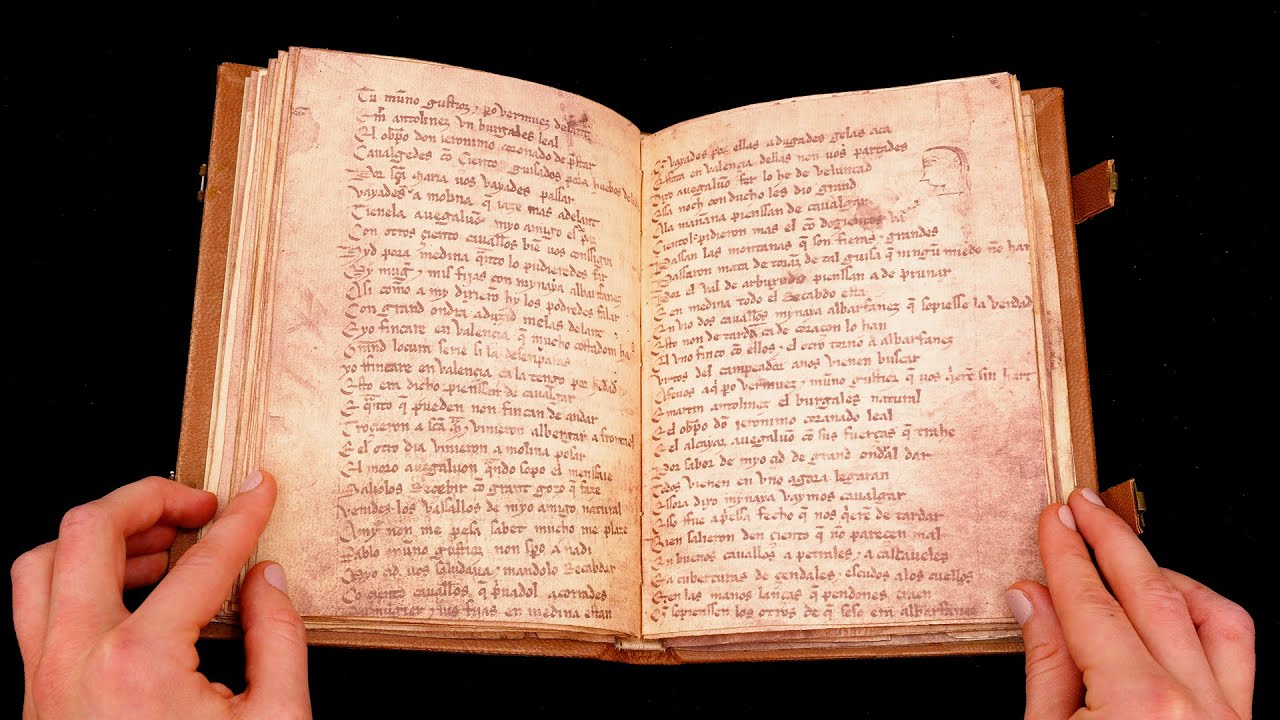 Tu muño gustioz ⁊ po vermuez delant
E mr̃ antolinez vn burgales leal
El obpo don ieronimo coronado de pstar
Caualgedes cõ Ciento guisados pora huebos de
Por sca maria uos vayades passar
vayades a molina q̃ iaze mas adelant
Tienela auegaluõ myo amigo es
Con otros çiento cauallos biẽ uos consigra
Hyd pora medina q̃nto lo pudieredes fer
My mug̃ ⁊ mis fijas con mynaya albarfanez
Asi comõ a my dixierõ hy los podredes falar
Con grand ondra aduzid melas delant
E yo fincare en valençia q̃ mucho costadom ha
Grand locura serie si la desenparas
yo ffincare en valençia ca la tengo por
Esto era dicho pienssan de caualgar
E q̃nto q̃ pueden non fincan de andar
Trocieron a sca ⁊ vinieron albergar a frontael
E el otro dia vinieron a molina posar
El moro auegaluon q̃ndo sopo el mensaie
Saliolos Recebir cõ grant gozo q̃ faze
Venides los vassallos de myo amigo natural
Amy non me pesa sabet mucho me plaze
Fablo muño gustioz non spo a nadi
Myo cid uos saludaua ⁊ mandolo Recabdar
Cõ ciento cauallos q̃ acorrades
Su mugier ⁊ sus fijas en medina estan
Q̃ vayades por ellas adugades gelas aca
E ffata en valencia dellas non uos partades
Dixo auegaluõ fer lo he de veluntad
Essa noch conducho les dio grand
Ala mañana pienssan de caualgar
Cientol pidieron mas el cõ dozientos ua
Passan las montanas q̃ son fieras ⁊ grandes
Passaron mata de torãz de tal guisa q̃ ningũ miedo nõ han
Por el val de arbuxedo pienssan a de prunar
E en medina todo el Recabdo esta
En vio dos cauallos mynaya albarfanez q̃ sopiesse la verdad
Esto non detardã ca de coraçon lo han
El vno finco cõ ellos ⁊ el otro tornó a albarfanez
Virtos del campeador anos vienen buscar
Afeuos aq̃ po vermuez ⁊ muño gustioz q̃ uos q̃eren sin hart
E martin antolinez el burgales natural
E el obpo dõ ieronimo coranado leal
E el alcayaz auegaluõ cõ sus fuerças q̃ trahe
Por sabor de myo cid de grand ondral dar
Todos vienen en vno agora legaran
Essora dixo mynaya vaymos caualgar
Esso ffue apriessa fecho q̃ nos q̃eren de tardar
Bien salieron den çiento q̃ non pareçen mal
En buenos cauallos a petrales ⁊ a cascaueles
E a cuberturas de çendales ⁊ escudos alos cuellos
E en las manos lanças q̃ pendones traen
Q̃ sopienssen los otros de q̃ seso era albarfanez